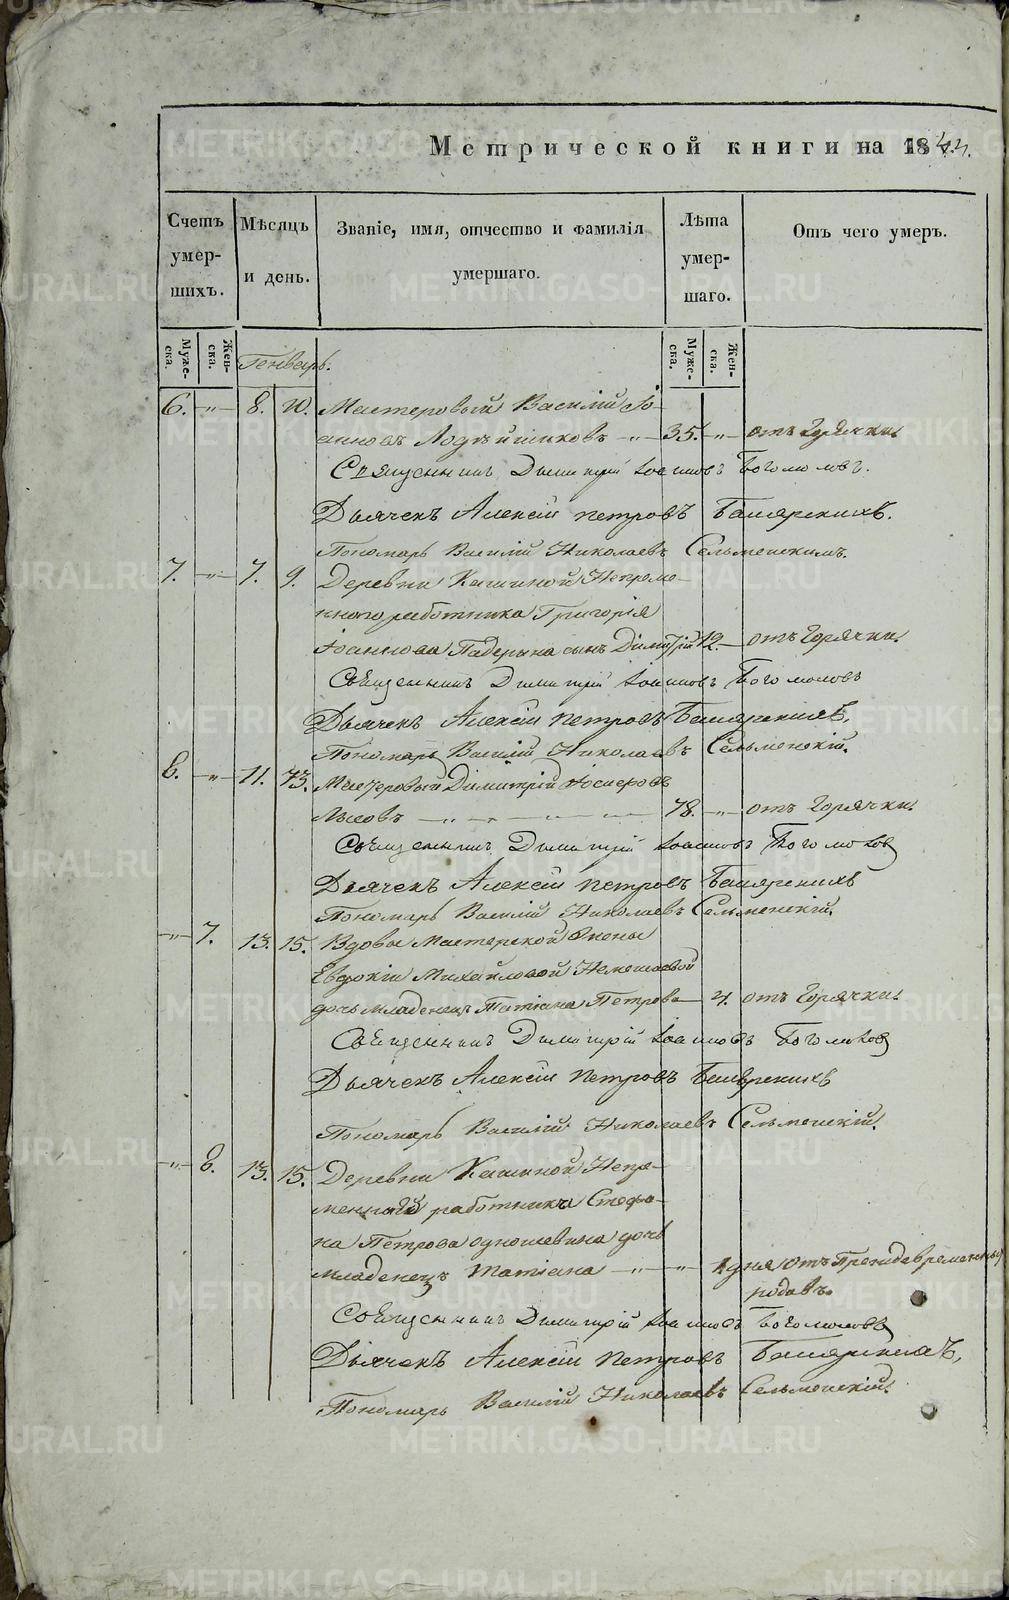 Метрической книги на 1844.
Счетъ умер- шихъ.
Мѣсяцъ и день.
Званіе, имя, отчество и фамилія умершаго.
Лѣта умер- шаго.
Отъ чего умеръ.
Муже- ска.
Жен- ска.
Генварь.
Муже- ска.
Жен- ска.
6. -„- 8. 10. Мастеровый Василій Іо-
анновъ -„- 35. -„- отъ Горячки
Священникъ Димитрій Іоанновъ Богомоловъ.
Дьячекъ Алексій Петровъ
Пономарь Василій Николаевъ Сельменскимъ
7. -„- 7. 9. Деревни Кашиной Непреме-
ннаго работника Григорія
Іоаннова Падерина сынъ Димитрій 12. отъ Горячки
Священникъ Димитрій Іоанновъ Богомоловъ
Дьячекъ Алексій Петровъ
Пономарь Василій Николаевъ Сельменскій.
8. -„- 11. 13. Мастеровый Димитрій Іосифовъ
Лысовъ -„- 78. -„- отъ Горячки
Священникъ Димитрій Іоанновъ Богомоловъ
Дьячекъ Алексій Петровъ
Пономарь Василій Николаевъ Сельменскій.
-„- 7. 13. 15. Вдовы Мастерской Жены
Евдокіи Михайловой
дочь младенецъ Татіана Петрова 4. отъ Горячки
Священникъ Димитрій Іоанновъ Богомоловъ
Дьячекъ Алексій Петровъ
Пономарь Василій Николаевъ Сельменскій.
-„- 8. 13. 15. Деревни Кашиной Непре-
меннаго работника Стефа-
на Петрова Одношевина дочь
младенецъ Татіана -„- -„- 1 дня отъ
родовъ.
Священникъ Димитрій Іоанновъ Богомоловъ
Дьячекъ Алексій Петровъ
Пономарь Василій Николаевъ Сельменскій.
METRIKI.GASO-URAL.RU